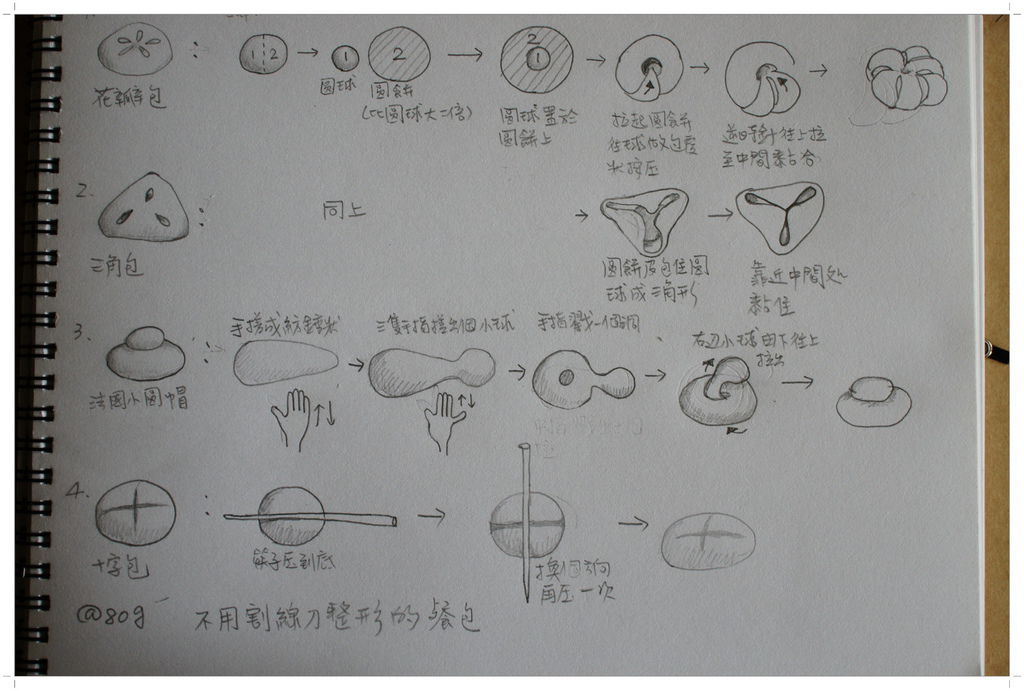 1.
花瓣包
:
1 2
1
圓球
2
圓餅
(比圓球大二倍)
2
1
圓球置於
圓餅上
拉起圓餅
往球做包覆
狀按压
逆時針往上拉
至中間黏合
2.
三角包
:
同上
圓餅皮包住圓
球成三角形
靠近中間处
黏住
3.
法國小圓帽
:
手搓成紡錘狀
三隻手指搓出個小球
手指戳一個洞
右边小球由下往上
拉出
4.
十字包
:
筷子压到底
換個方向
再压一次
@80g
不用割線刀整形的餐包